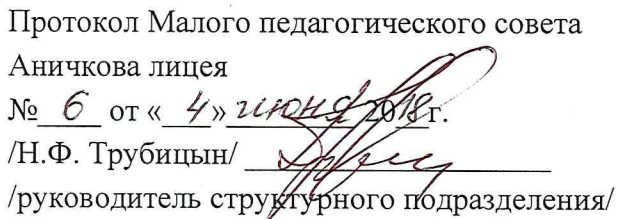 Протокол Малого педагогического совета
Аничкова лицея
№ 6 от « 4 » июня 2018 г.
/Н.Ф. Трубицын/
/руководитель структурного подразделения/